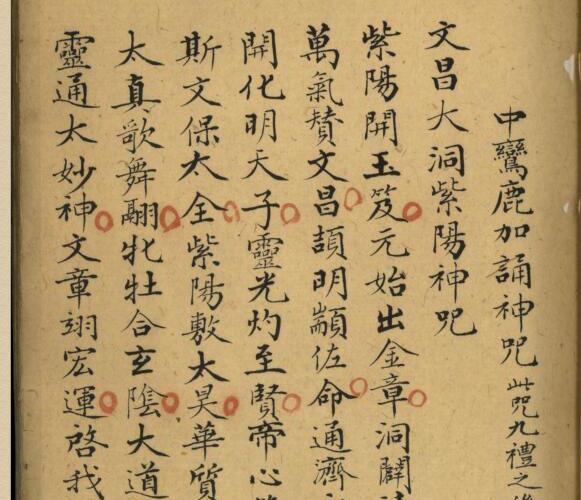 中鸞鹿加誦神咒此咒九禮之後
文昌大洞紫陽神咒
紫陽開玉笈元始出金章洞闢
萬氣贊文昌頡明顓佐命通濟
開化明天子靈光灼至賢帝心
斯文保太全紫陽敷太昊華質
太真歌舞翮牝牡合玄陰大道
靈通太妙神文章翊宏運啓我